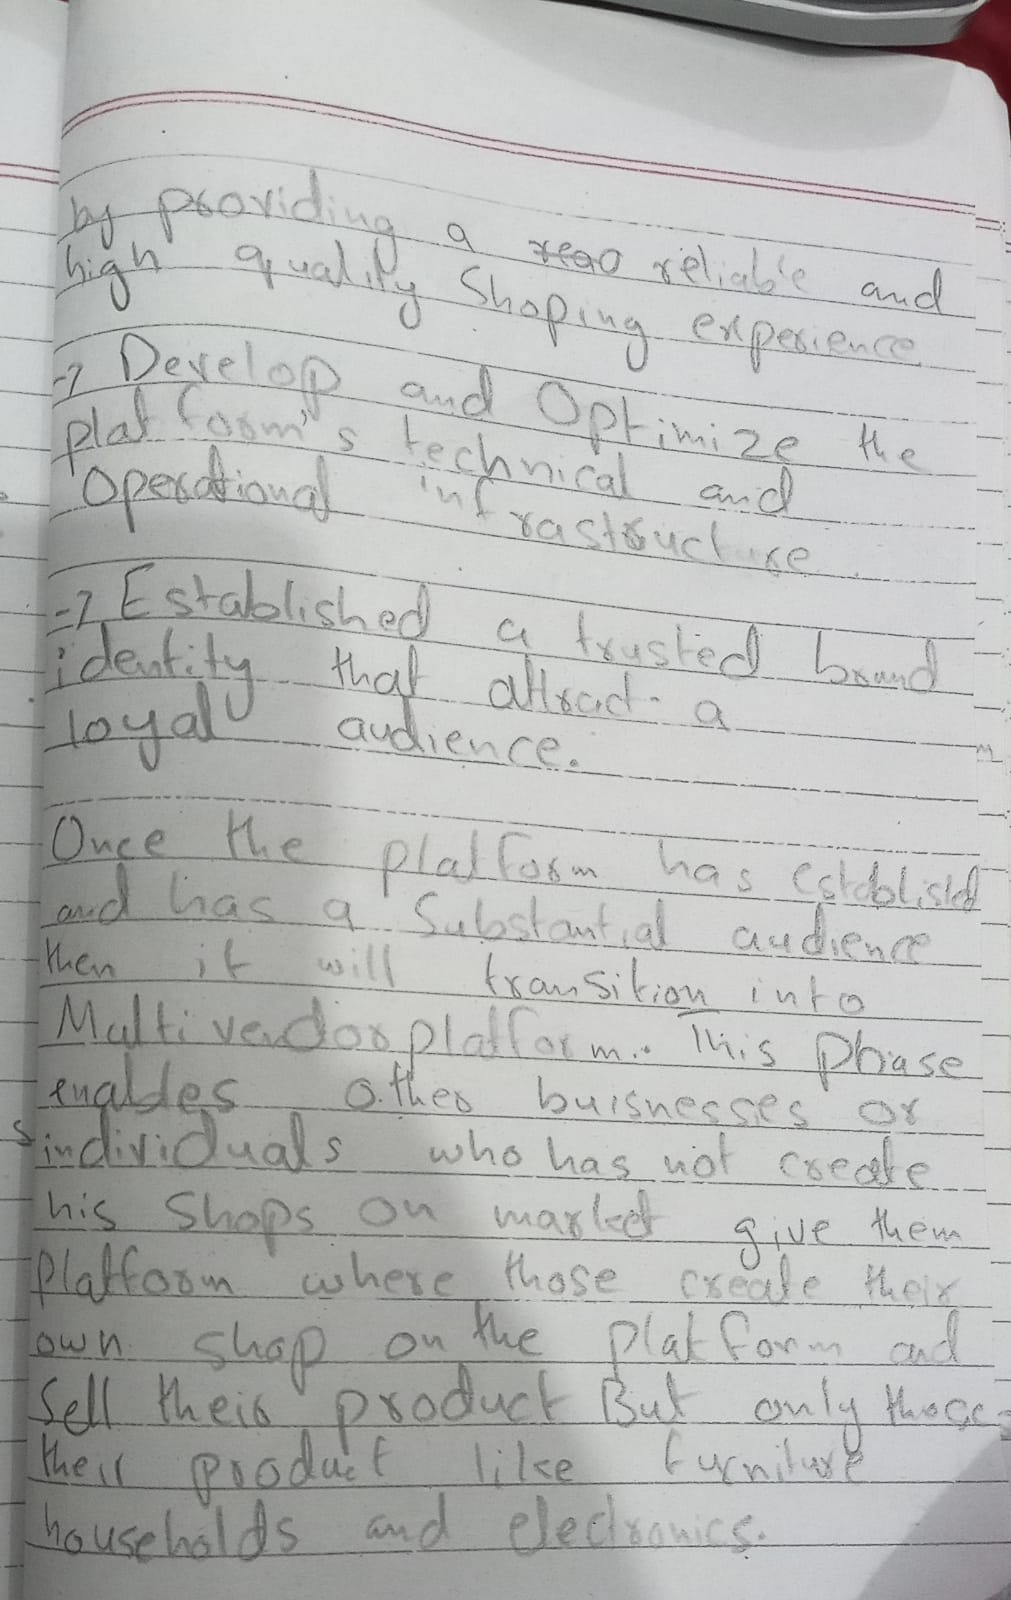 by providing a reao reliable and
high quality Shoping experience
-> Develop and Optimize the
platform's technical and
Operational infrastructure
-> Established a trusted brand
identity that attract a
loyal audience.
Once the platform has established
and has a Substantial audience
then it will transition into
Multi vendor platform. This phase
enables other buisnesses or
individuals who has not create
his shops on market give them
Platform where those create their
own shop on the platform and
Sell their product But only those
their product like furniture
households and electronics.